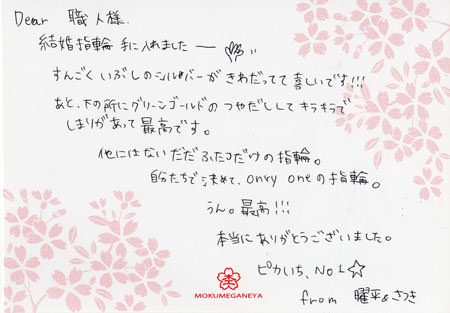 Dear 職人様.
結婚指輪 手に入れました ー
すんごく いぶしのシルバーが きわだってて 喜しいです!!!
あと、下の所にグリーンゴールドの つやだししてキラキラで
しまりがあって 最高です。
他にはないだだふたつだけの指輪。
自分たちで決めて、only oneの指輪。
うん。最高!!!
本当に ありがとうございました。
ピカいち、NO1☆
from 曜平&さつき
MOKUMEGANEYA